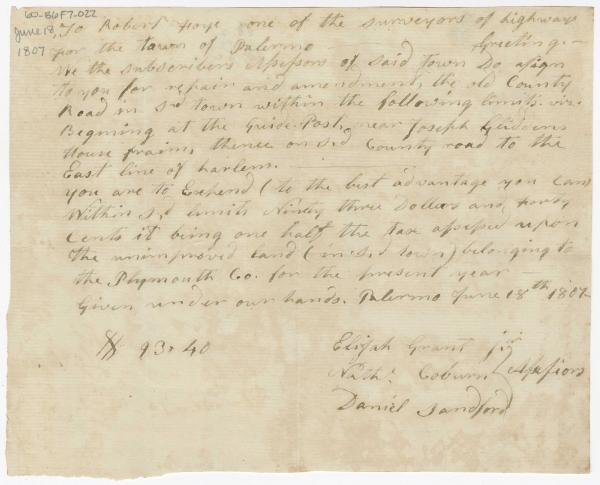 60-B6F7-022
June 18,
1807
To Robert Foye one of the surveyors of highways
for the town of Palermo — Greeting. —
We the subscribers Assessors of said town Do asign
to you for repair and amendment, the old County
Road in sd town within the following limits. viz.
Begining at the Guide Post, near Joseph Gliddens
House frame, thence on sd County road to the
East line of harlem.
you are to Expend (to the best advantage you can)
Within sd limits Ninty three Dollars and forty
Cents it being one half the tax assessed upon
the unimproved land (in sd town) belonging to
the Plymouth Co. for the present year —
Given under our hands. Palermo June 18th 1807
$ 93.40
Elijah Grant jur
Nathl. Coburn } Assessors
Daniel Sandford